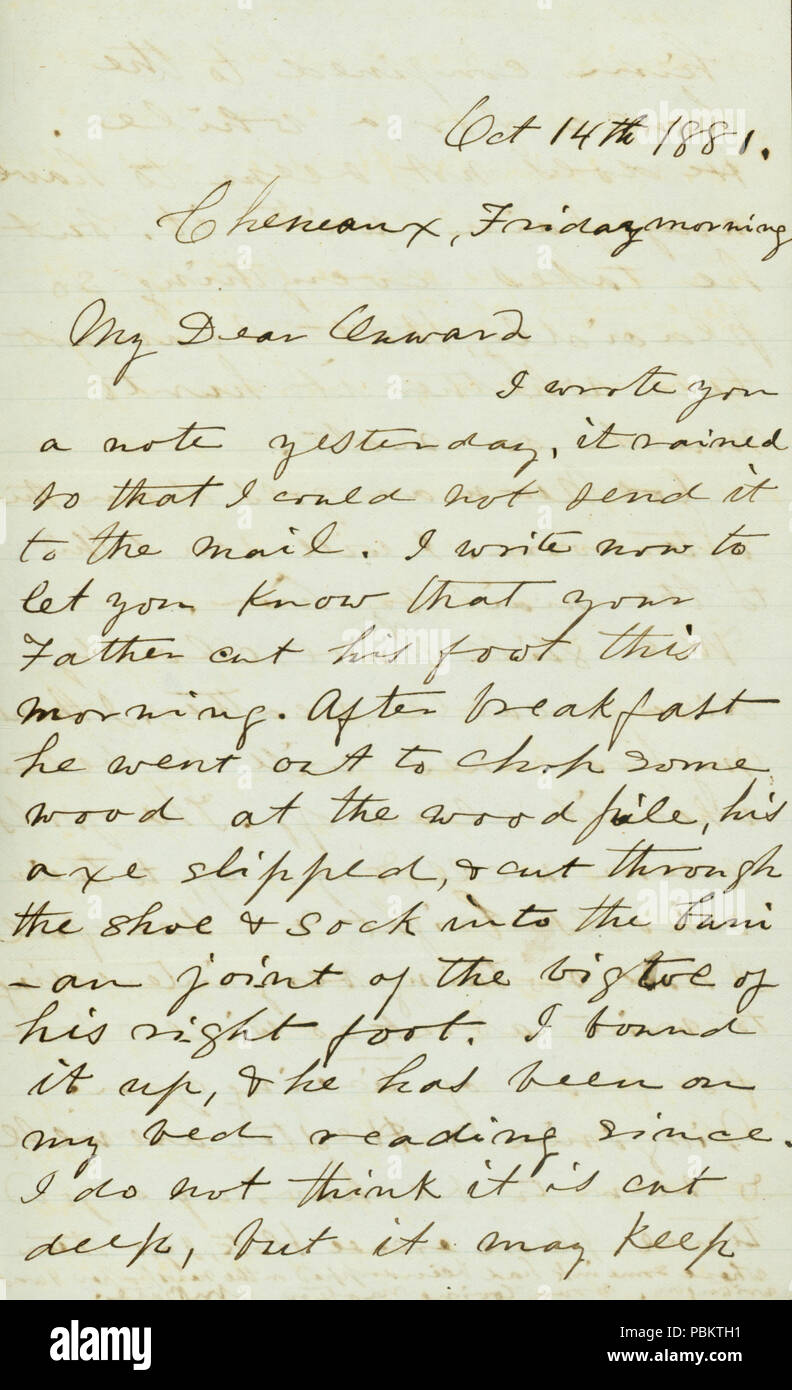 Oct 14th 1881.
Cheneaux, Friday morning
My Dear Onward
I wrote you
a note yesterday, it rained
so that I could not send it
to the mail. I write now to
let you know that your
Father cut his foot this
morning. After breakfast
he went out to chop some
wood at the wood pile, his
axe slipped, & cut through
the shoe & sock into the buni
-an joint of the big toe of
his right foot. I bound
it up, & he has been on
my bed reading since.
I do not think it is cut
deep, but it may keep
alamy
Image ID: PBKTH1
www.alamy.com